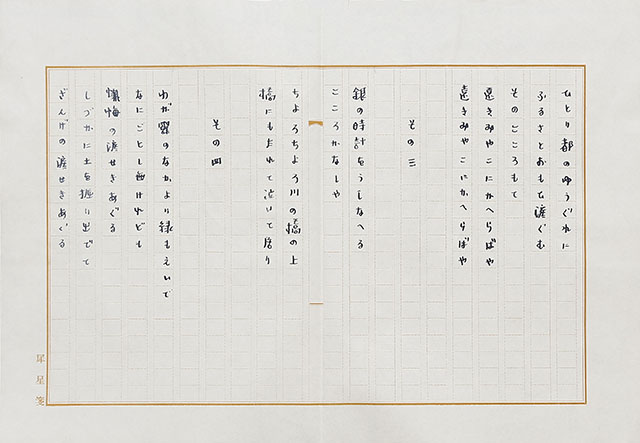 ひとり都のゆうぐれに
ふるさとおもひ涙ぐむ
そのこころもて
遠きみやこにかへらばや
遠きみやこにかへらばや
その三
銀の時計をうしなへる
こころかなしや
ちよろちよろ川の橋の上
橋にもたれて泣いて居り
その四
わが霊のなかより緑もえいで
なにごとしなけれども
懺悔の涙せきあぐる
しづかに土を掘り出でて
ざんげの涙せきあぐる
犀星箋